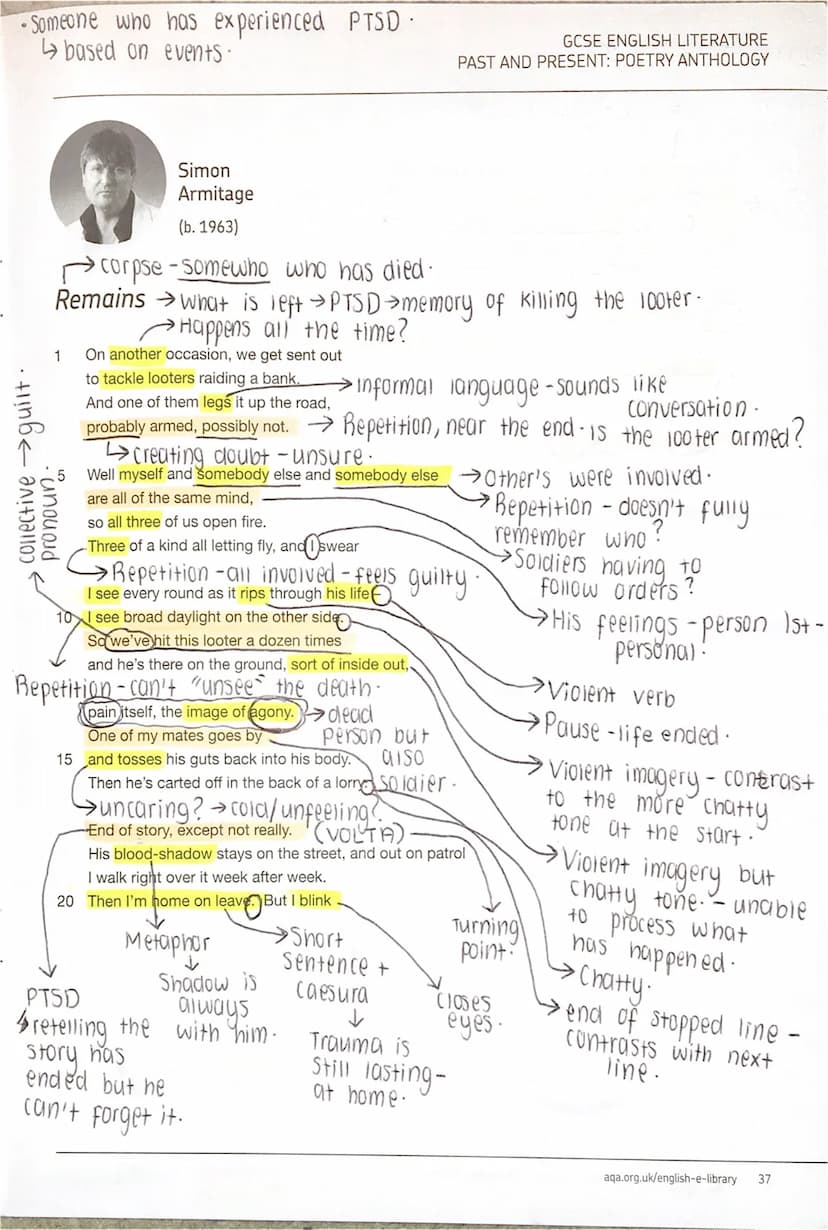 • Someone who has experienced PTSD •
↳ based on events •
GCSE ENGLISH LITERATURE
PAST AND PRESENT: POETRY ANTHOLOGY
Simon
Armitage
(b. 1963)
→ corpse - somewho who has died •
Remains → what is left → PTSD → memory of killing the looter •
→ Happens all the time?
1 On another occasion, we get sent out
to tackle looters raiding a bank.
→ Informal language - sounds like
conversation •
And one of them legs it up the road,
probably armed, possibly not.
→ Repetition, near the end • is the looter armed?
↳ creating doubt - unsure •
collective → guilt •
pronoun •
5 Well myself and somebody else and somebody else
→ Other's were involved •
are all of the same mind,
→ Repetition - doesn't fully
remember who?
so all three of us open fire.
→ Soldiers having to
follow orders?
Three of a kind all letting fly, and I swear
→ Repetition - all involved - feels guilty •
I see every round as it rips through his life –
10 I see broad daylight on the other side.
→ His feelings - person 1st -
personal •
So we've hit this looter a dozen times
and he's there on the ground, sort of inside out,
Repetition - can't "unsee" the death •
→ Violent verb
pain itself, the image of agony.
→ dead
person but
also
soldier •
→ Pause - life ended •
One of my mates goes by
15 and tosses his guts back into his body.
Then he's carted off in the back of a lorry.
→ Violent imagery - contrast
to the more chatty
tone at the start •
→ uncaring? → cold/unfeeling?
End of story, except not really.
(VOLTA)
His blood-shadow stays on the street, and out on patrol
I walk right over it week after week.
→ Violent imagery but
chatty tone • - unable
to process what
has happened •
20 Then I'm home on leave. But I blink
Turning
point •
→ Chatty •
→ end of stopped line -
contrasts with next
line •
Metaphor
↓
Shadow is
always
with him •
→ Short
sentence +
caesura
↓
Trauma is
still lasting -
at home •
closes
eyes •
PTSD
↳ retelling the
story has
ended but he
can't forget it •
aqa.org.uk/english-e-library 37